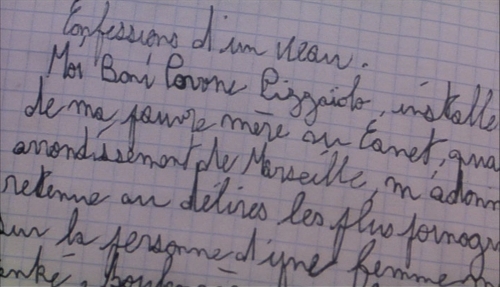 Confessions d'un veau.
Moi Boni Pavone Pizzaiolo, installé
de ma pauvre mère au Canet, qua
arrondissement de Marseille, m'adonn
retenue au délires les plus pornogra
sur la personne d'une femme